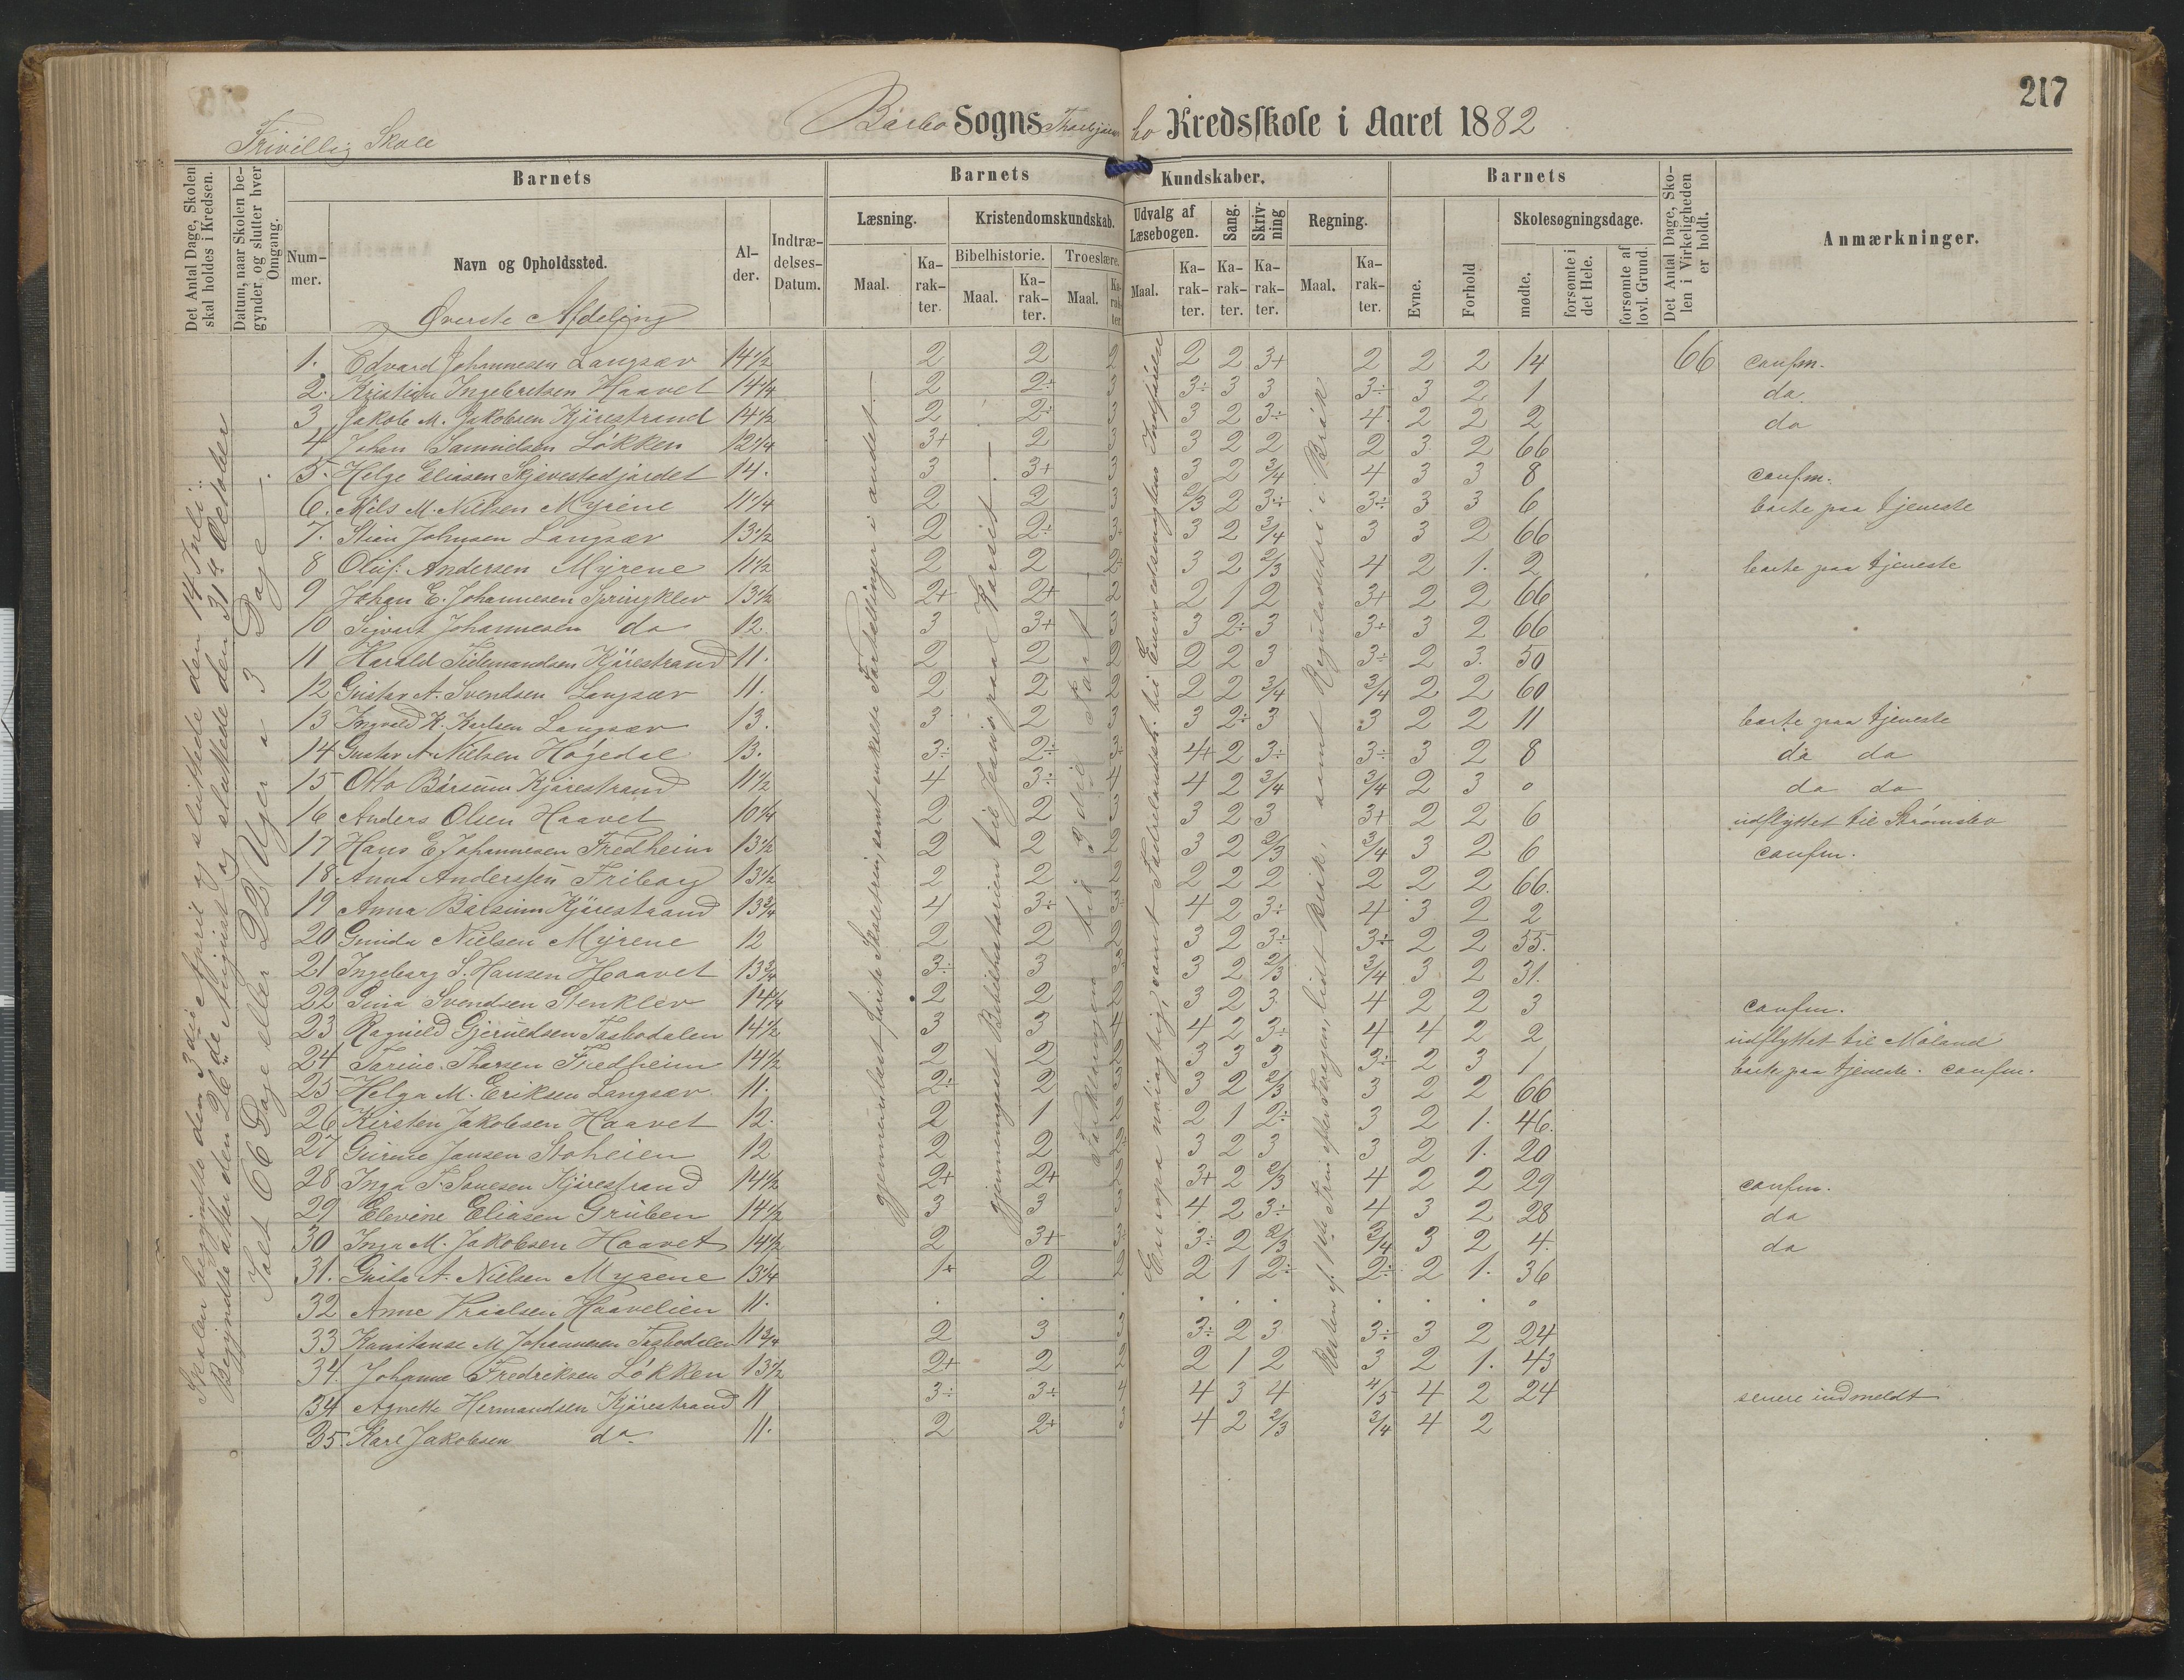 217
Frivillig Skole
Barbo Sogns Thorbjørns bo Kredsskole i Aaret 1882
Det Antal Dage, Skolen skal holdes i Kredsen.
Datum, naar Skolen begynder, og slutter hver Omgang.
Barnets
Nummer.
Navn og Opholdssted.
Alder.
Indtrædelses-Datum.
Barnets Kundskaber.
Læsning.
Maal.
Karakter.
Kristendomskundskab.
Bibelhistorie.
Maal.
Karakter.
Troeslære.
Maal.
Karakter
Udvalg af Læsebogen.
Maal.
Karakter.
Sang.
Karakter.
Skrivning
Karakter.
Regning.
Maal.
Karakter.
Barnets
Evne.
Forhold
Skolesøgningsdage.
mødte.
forsømte i det Hele.
forsømte af lovl. Grund.
Det Antal Dage, Skolen i Virkeligheden er holdt.
Anmærkninger.
Øverste Afdeling
Skolen begyndte den 3die April og sluttede den 14 Juli.
Begyndte atter den 26de August og sluttede den 31te October
Ialt 66 Dage eller 22 Uger a 3 Dage.
gjennemlæst første Skoletrin, samt enkelte Fortællinger i andet.
gjennemgaaet Bibelhistorien til Jesus paa Korset.
Forklaringen til 3die Part
Europa nøiagtig, samt Fædrelandsh. til Enevoldsmagten Indførelse
Resten af 1ste Trin efter Kragen, lidt Brøk, samt Reguladetri i Brøk
1. Edvard Johannesen Langsæv 14 1/2 2 2 2 2 2 3+ 2 2 2 14 66 confm.
2. Kristian Ingebretsen Haavet 14 1/4 2 2÷ 3 3÷ 3 3 3÷ 3 2 1 do.
3 Jakob M. Jakobsen Kjørestrand 14 1/2 2 2÷ 3 3 2 3÷ 4 2 2 2 do
4 Johan Samuelsen Løkken 12 1/4 3+ 2 3 3 2 2 2 3 2 66
5. Helge Eliasen Skjævestadjordet 14. 3 3+ 3 3 2 3/4 4 3 3 8 confm.
6. Nils M. Nielsen Myrene 11 1/4 2 2 3 2/3 2 3÷ 3÷ 3 3 6 borte paa tjeneste
7. Stian Johnsen Langsæv 13 1/2 2 2÷ 3 3 2 3/4 3 3 2 66
8 Oluf Andersen Myrene 11 1/2 2 2 2 3 2 2/3 4 2 1. 2 borte paa tjeneste
9 Johan E. Johannesen Springklev 13 1/2 2+ 2+ 2 2 1 2 3+ 2 2 66
10 Sigvart Johannesen do 12. 3 3+ 3 3 2÷ 3 3÷ 3 2 66
11 Harald Tidemandsen Kjørestrand 11. 2 2 2 2 2 3 3÷ 2 3. 50
12 Gustav A. Svendsen Langsæv 11. 2 2 2 2 2 3/4 3/4 2 2 60
13 Ingvald K. Karlsen Langsæv 13. 3 2 2 3 2÷ 3 3 2 2 11 borte paa tjeneste
14 Gustav A. Nielsen Høgedal 13. 3÷ 2÷ 3 4+ 2 3÷ 3÷ 3 2 8 do do
15 Otto Børsum Kjørestrand 11 1/2 4 3÷ 4 4 2 3/4 3/4 2 3 0 do do
16 Anders Olsen Haavet 10 1/4 2 2 3 3 2 3 3+ 2 2 6 udflyttet til Strømsbo
17 Hans E. Johannesen Fredheim 13 1/2 2 2 2 3 2 2/3 3/4 3 2 6 confm.
18 Anna Anderssen Friborg 13 1/2 2 2 2 2 2 2 2 2 2 66.
19 Anna Børsum Kjørestrand 13 3/4 4 3÷ 3 4 2 3÷ 4 3 2 2
20 Gunda Nielsen Myrene 12 2 2 2 3 2 3÷ 3÷ 2 2 55.
21 Ingeborg S. Hansen Haavet 13 3/4 3÷ 3 3 3 2 2/3 3/4 3 2 31.
22 Sina Svendsen Stenklev 14 1/4 2 2 2 3 2 3 4 2 2 3 confm.
23 Ragnild Gjeruldsen Tasbodalen 14 1/2 3 3 4 4 2 3÷ 4 4 2 2 udflyttet til Moland
24 Torine Thorsen Fredheim 14 1/2 2 2 2 3 3 3 3÷ 2 3 1 borte paa tjeneste. confm.
25 Helga M. Eriksen Langsæv 11. 2÷ 2 2 3 2 2/3 3 2 2 66
26 Kirsten Jakobsen Haavet 12. 2 1 2 2 1 2÷ 3 2 1. 46.
27 Gurine Jansen Stoheien 12 2 2 2 3 2 3 3 2 1. 20
28 Inga T. Sonesen Kjørestrand 14 1/2 2+ 2+ 2 3+ 2 2/3 4 2 2 29 confm.
29 Elevine Eliasen Gruben 14 1/2 3 3 3 4 2 3÷ 4 3 2 28 do
30 Inga M. Jakobsen Haavet 14 1/2 2 3+ 3 3÷ 2 2/3 3/4 3 2 4. do
31. Gusta A. Nielsen Myrene 13 1/4 1÷ 2 2 2 1 2÷ 2÷ 2 1. 36
32. Anne Knudsen Haavelien 11. . . . . . . . . . 0
33 Konstanse M. Johannesen Tasbodalen 11 3/4 2 3 3 3÷ 2 3 3÷ 3 2 24
34. Johanne Fredriksen Løkken 13 1/2 2+ 2 2 2 1 2 3 2 1. 43
34 Agnette Hermandsen Kjørestrand 11 3÷ 3÷ 4 4 3 4 4/5 4 2 24 senere indmeldt
35. Karl Jakobsen do. 11. 2 2+ 3 4 2 2/3 3/4 4 2